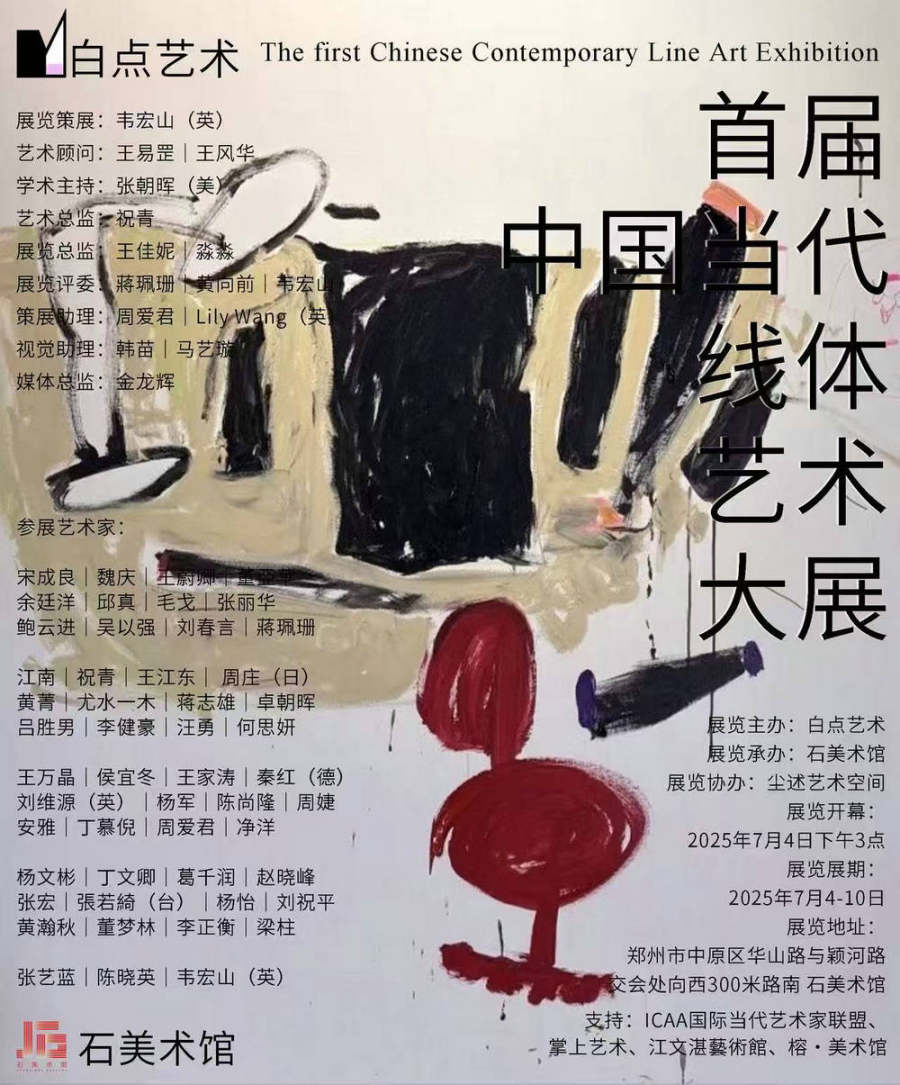 白点艺术
The first Chinese Contemporary Line Art Exhibition
首届
中国当代
线体
艺术
大展
展览策展：韦宏山（英）
艺术顾问：王易罡｜王风华
学术主持：张朝晖（美）
艺术总监：祝青
展览总监：王佳妮｜淼淼
展览评委：蔣珮珊｜黄向前｜韦宏山
策展助理：周爱君｜Lily Wang（英）
视觉助理：韩苗｜马艺璇
媒体总监：金龙辉
参展艺术家：
宋成良｜魏庆｜王蔚卿｜董亚苹
余廷洋｜邱真｜毛戈｜张丽华
鲍云进｜吴以强｜刘春言｜蔣珮珊
江南｜祝青｜王江东｜ 周庄（日）
黄菁｜尤水一木｜蒋志雄｜卓朝晖
吕胜男｜李健豪｜汪勇｜何思妍
王万晶｜侯宜冬｜王家涛｜秦红（德）
刘维源（英）｜杨军｜陈尚隆｜周婕
安雅｜丁慕倪｜周爱君｜净洋
杨文彬｜丁文卿｜葛千润｜赵晓峰
张宏｜張若綺（台）｜杨怡｜刘祝平
黄瀚秋｜董梦林｜李正衡｜梁柱
张艺蓝｜陈晓英｜韦宏山（英）
展览主办：白点艺术
展览承办：石美术馆
展览协办：尘述艺术空间
展览开幕：
2025年7月4日下午3点
展览展期：
2025年7月4-10日
展览地址：
郑州市中原区华山路与颖河路
交会处向西300米路南 石美术馆
支持：ICAA国际当代艺术家联盟、
掌上艺术、江文湛藝術館、榕·美术馆
石美术馆